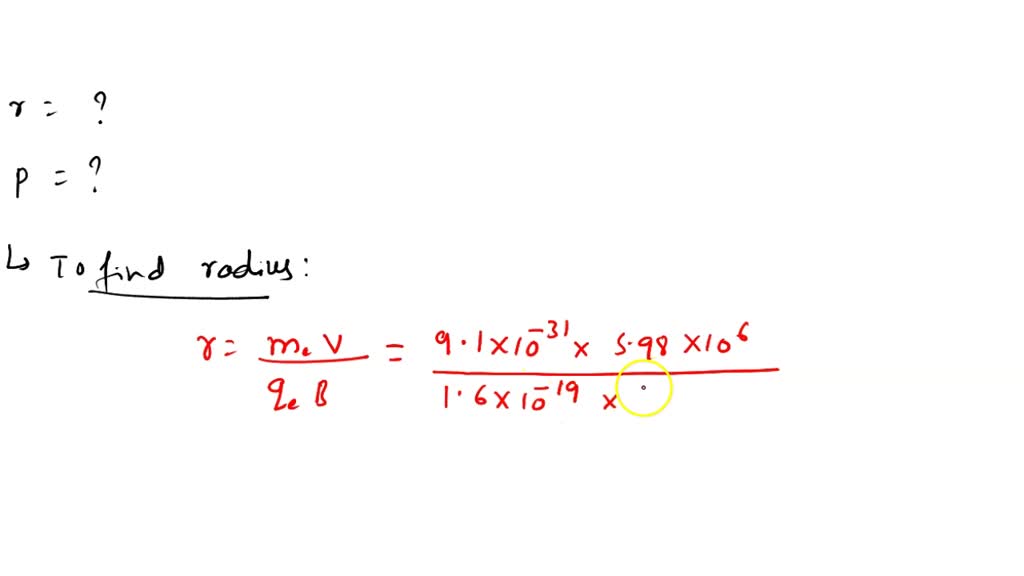 r = ?
p = ?
↳ To find radius:
r = mₑ V / qₑ B = 9.1 × 10⁻³¹ × 5.98 × 10⁶ / 1.6 × 10⁻¹⁹ ×